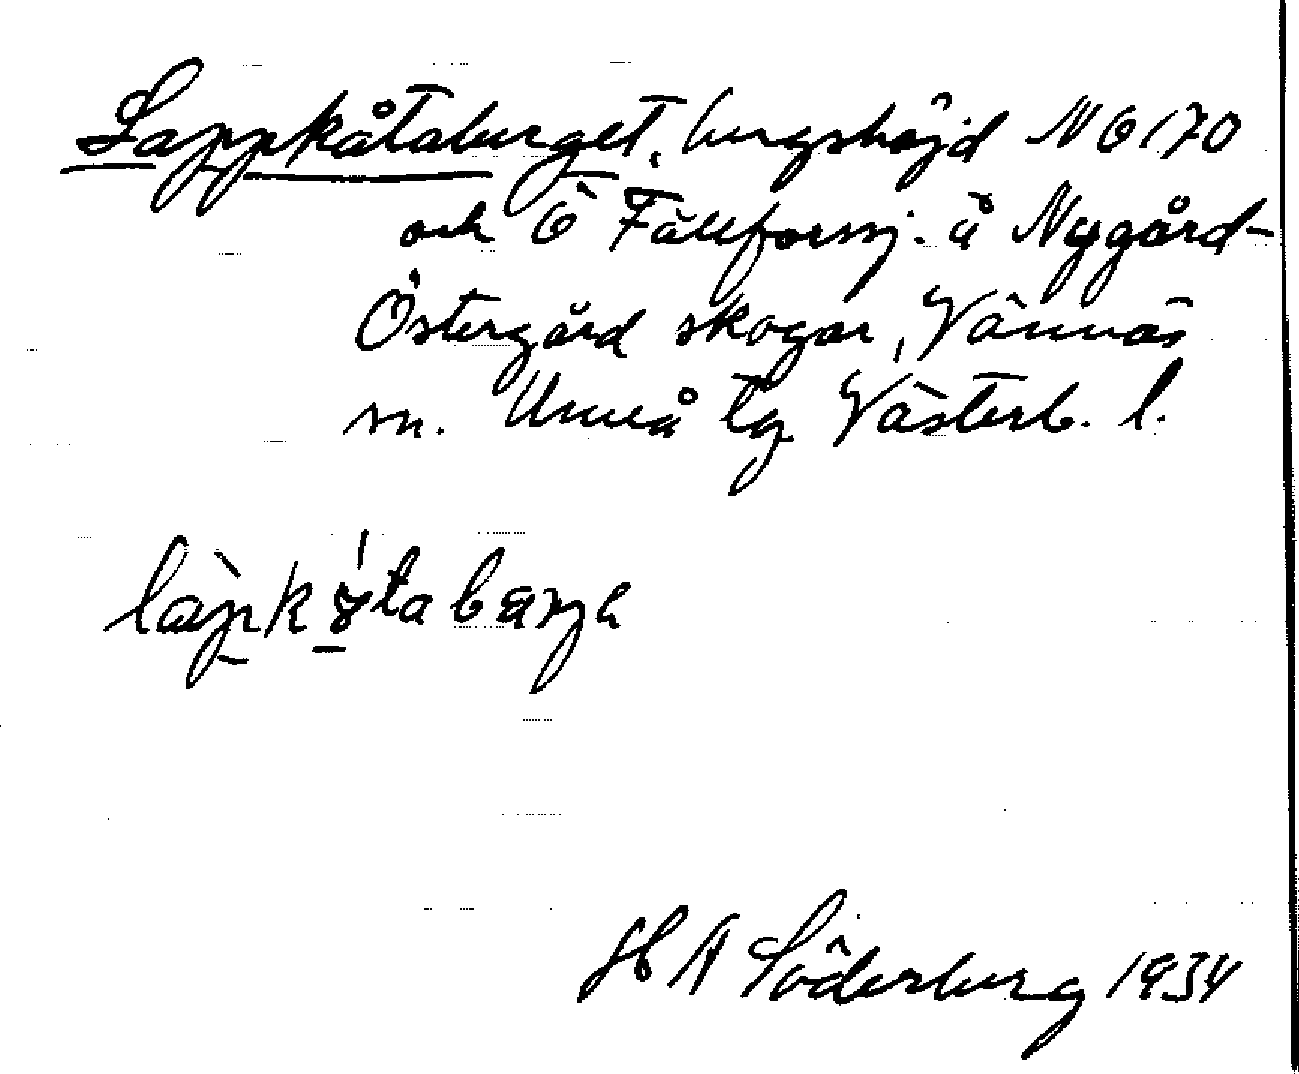 Lappkåtaberget, bergshöjd N 6170
och Ö Fällforssj. å Nygård-
Östergård skogar, Vännäs
sn. Umeå tg Västerb. l.
H A Söderberg 1934